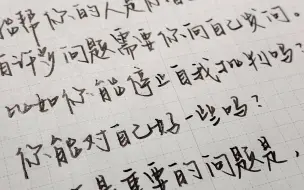 能帮你的人是你
有许多问题需要你向自己发问。
比如你能停止自我批判吗？
你能对自己好一些吗？
重要的问题是，